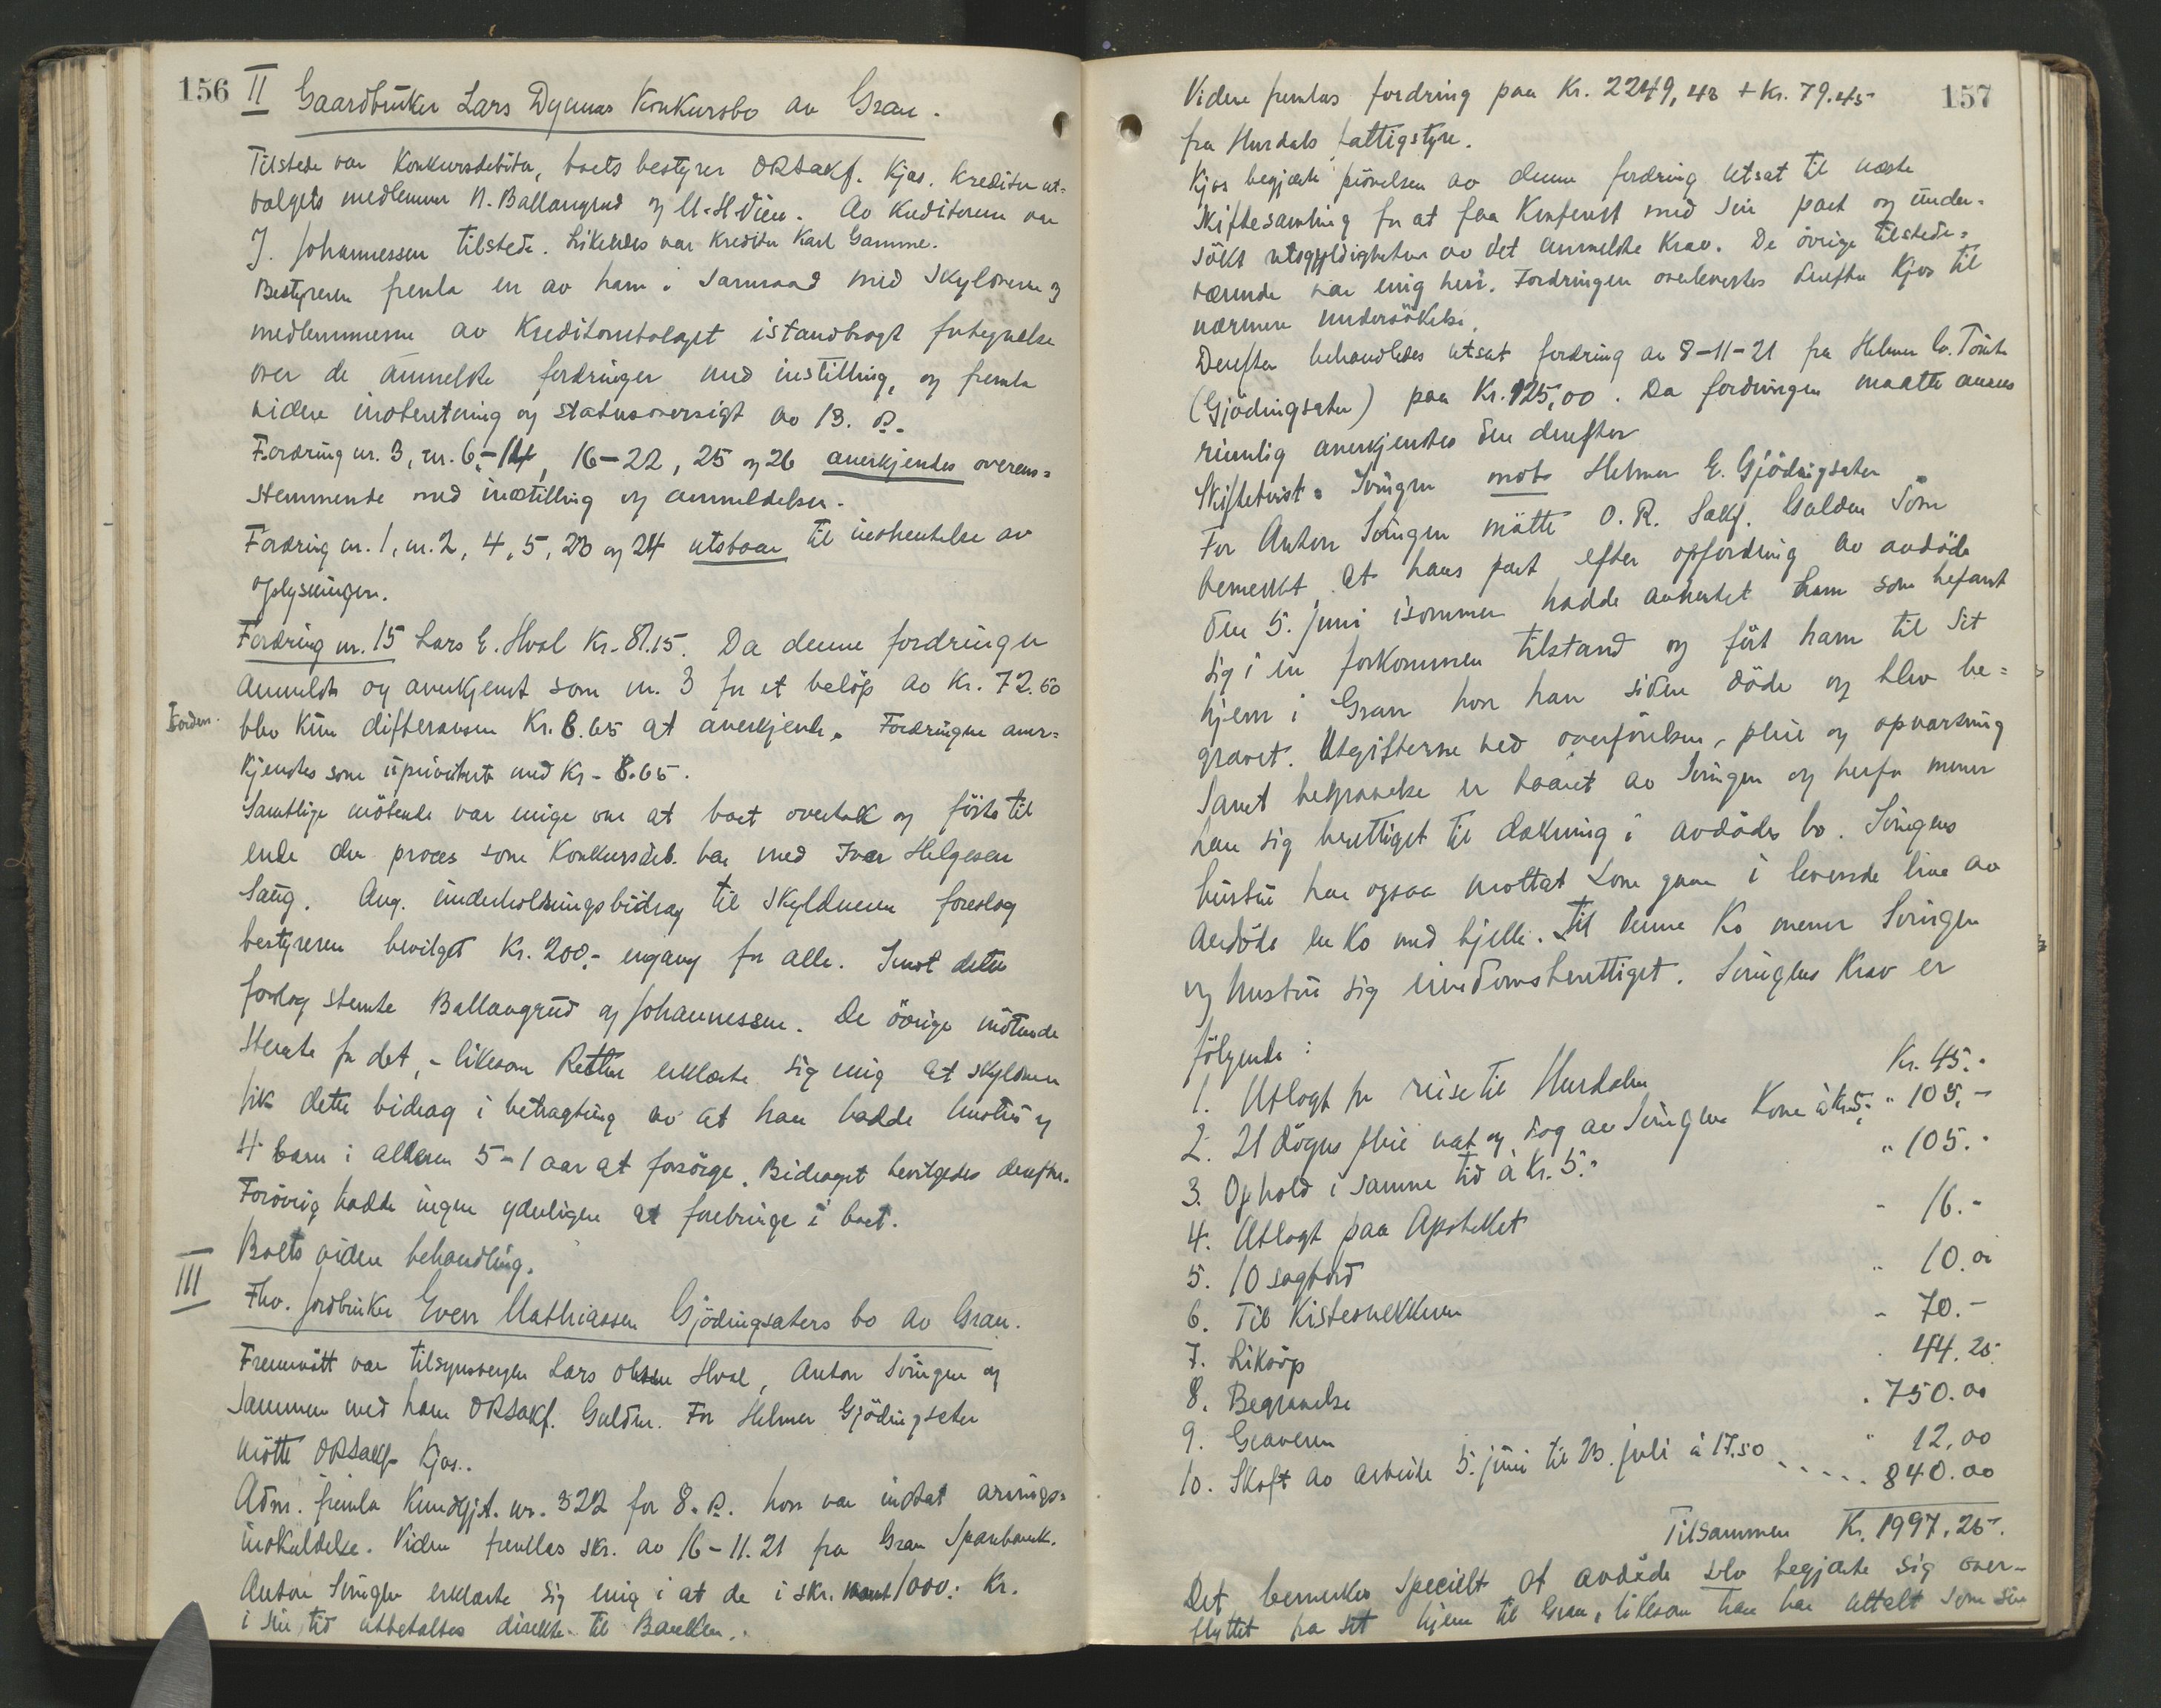 156
II Gaardbruker Lars Dynnas Konkursbo av Gran.
Tilstede var Konkursdebitor, boets bestyrer ORSakf. Kjos. Kreditorut=
valgets medlemmer N. Ballangrud og M. H. Vien. Av Kreditorene var
J. Johannessen tilstede. Likeledes var Kreditor Karl Gamme.
Bestyreren fremla en av ham i samraad med Skyldneren og
medlemmerne av Kreditorutvalget istandbragt fortegnelse
over de anmeldte fordringer med instilling, og fremla
videre indberetning og statusoversigt av 13. ds.
Fordring nr. 3, nr. 6-14, 16-22, 25 og 26 anerkjendes overens=
stemmende med indstilling og anmeldelsen.
Fordring nr. 1, nr. 2, 4, 5, 23 og 24 utstaar til indhentelse av
oplysninger.
Fordring nr. 15 Lars E. Hval Kr. 81.15. Da denne fordringen
anmeldt og anerkjent som nr. 3 for et beløp av Kr. 72.50
blev kun differansen Kr. 8.65 at anerkjende. Fordringen aner=
kjendes som uprioritert med Kr. 8.65.
Samtlige møtende var enige om at boet overtok og førte til
ende den proces som Konkursdeb. har med Iver Helgesen
Saug. Ang. underholdningsbidrag til Skyldneren foreslog
bestyreren bevilget Kr. 200,- engang for alle. Imot dette
forslag stemte Ballangrud og Johannessen. De øvrige møtende
stemte for det, - likesom Retten erklærte sig enig at skyldneren
fik dette bidrag i betragtning av at han hadde hustru og
4 barn i alderen 5-1 aar at forsørge. Bidraget bevilgedes derefter.
Forøvrig hadde ingen yderligere at frembringe i boet.
Boets videre behandling.
III
Fhv. jordbruker Even Mathiassen Gjødingsæters bo av Gran.
Fremmøtt var tilsynsvergen Lars Olsen Hval, Anton Svingen og
sammen med ham ORSakf. Gulden. For Helmer Gjødingsæter
møtte ORSakf. Kjos.
Adm. fremla Kundgjt. nr. 322 for 8. ds. hvor var indtat arvings=
indkaldelse. Videre fremlas skr. av 16-11.21 fra Gran Sparebank.
Anton Svingen erklærte sig enig i at de i skr. nævnt 1000.- Kr.
i sin tid utbetaltes direkte til Banken.
157
Videre fremlas fordring paa Kr. 2249,43 + Kr. 79.45
fra Hurdals fattigstyre.
Kjos begjærte prøvelsen av denne fordring utsat til næste
Skiftesamling for at faa Konferert med sin part og under=
søkt retsgyldigheten av det anmeldte Krav. De øvrige tilstede=
værende var enig heri. Fordringen overleveredes derefter Kjos til
nærmere undersøkelse.
Derefter behandledes utsat fordring av 8-11-21 fra Helmer
(Gjødingsæter) paa Kr. 125,00. Da fordringen maatte ansees
rimelig anerkjendes den derefter
Skiftetvist: Svingen mot Helmer E. Gjødingsæter
For Anton Svingen møtte O.R. Sakf. Gulden som
bemerket at hans part efter opfordring av avdøde
den 5. juni isommer hadde avhentet ham som befandt
sig i en forkommen tilstand og ført ham til sit
hjem i Gran hvor han siden døde og blev be=
gravet. Utgifterne ved overførelsen, pleie og opvartning
samt begravelse er baaret av Svingen og herfor mener
han sig berettiget til dækning i avdødes bo. Svingens
hustru har ogsaa mottat som gave i levende live av
avdøde en Ko med bjelle. Til denne Ko mener Svingen
og hustru sig eiendomsberettiget. Svingens Krav er
følgende:
1. Utlagt for reise til Hurdalen Kr. 45.-
2. 21 døgns pleie nat og dag av Svingens Kone à kr. 5.- " 105.-
3. Ophold i samme tid à Kr. 5.- " 105.-
4. Utlagt paa Apoteket - 16.-
5. 10 sagbord " 10.00
6. Til Kistesnekkeren - 70.-
7. Liksöp . 44.25
8. Begravelse . 750.00
9. Graveren " 12,00
10. Skaft av arbeide 5. juni til 23. juli à 17.50 ..... 840.00
Tilsammen Kr. 1997.25.
Det bemerkes specielt at avdøde selv begjærte sig over=
flyttet fra sit hjem til Gran, likesom han har uttalt som sin